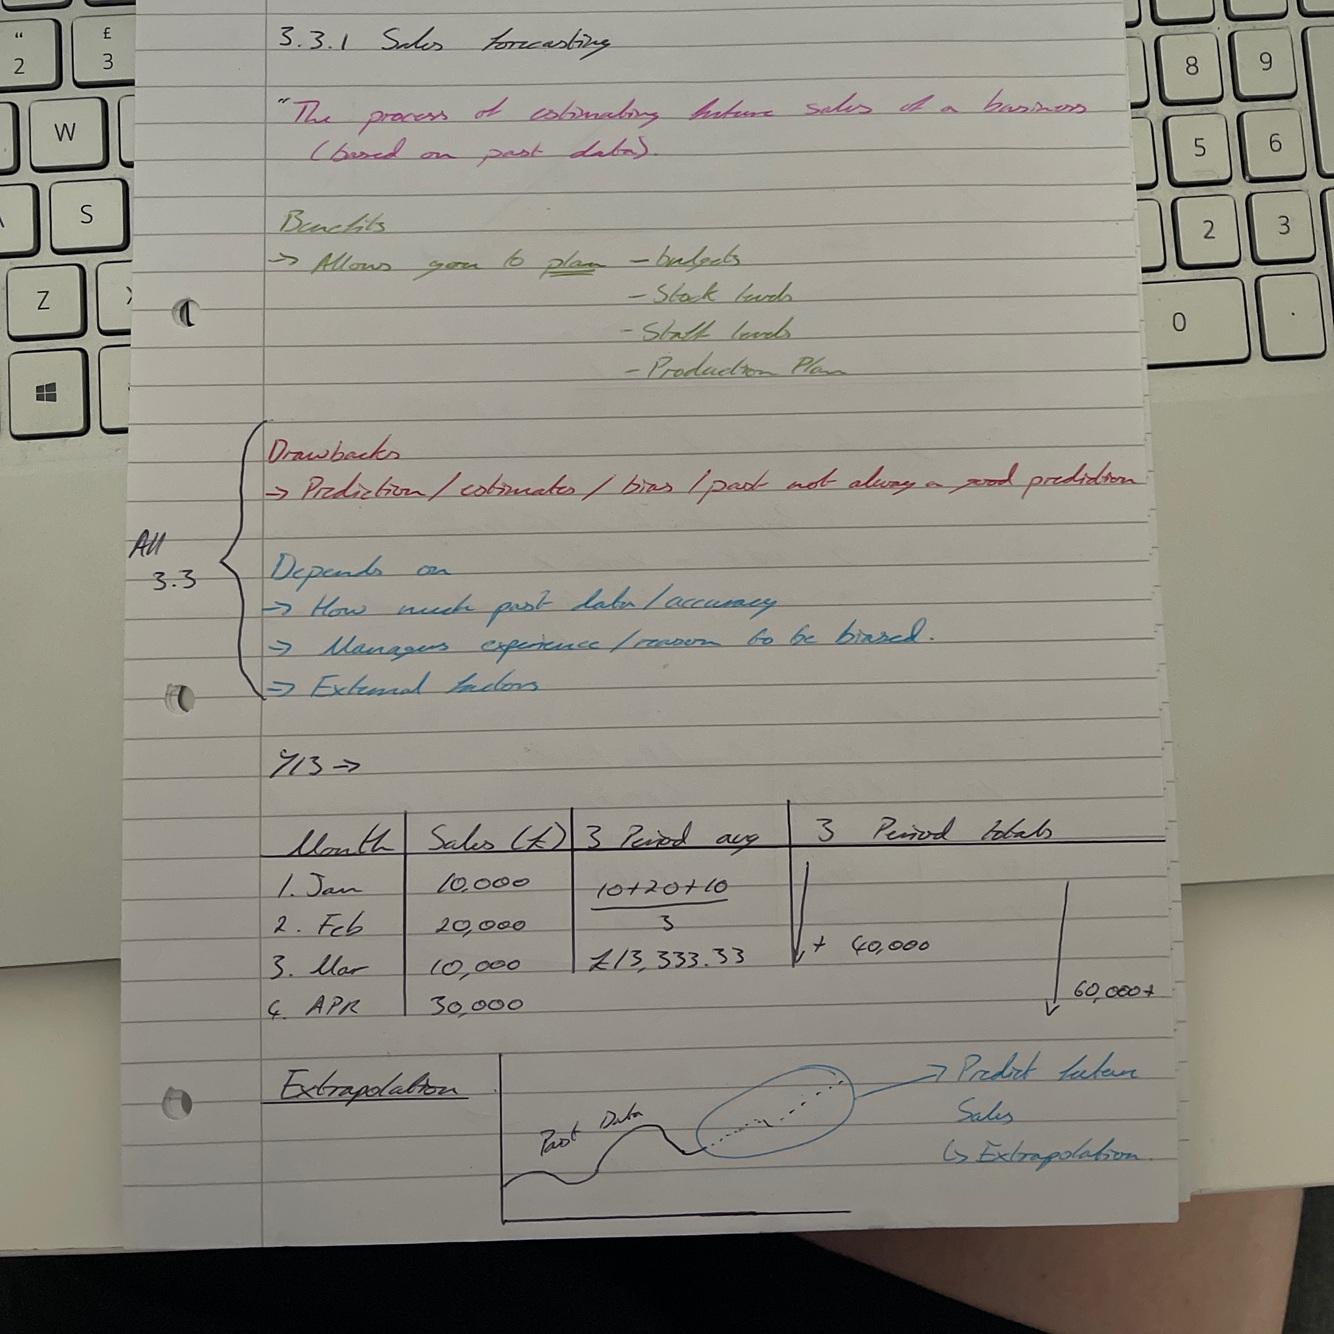 3.3.1 Sales forecasting
"The process of estimating future sales of a business
(based on past data).
Benefits
→ Allows you to plan - budgets
- Stock levels
- Staff levels
- Production Plan
Drawbacks
→ Prediction / estimates / bias / past not always a good prediction
All
3.3
Depends on
→ How much past data / accuracy
→ Managers experience / reason to be biased.
→ External factors
Y13 →
Month Sales (£) 3 Period avg 3 Period totals
1. Jan 10,000 10+20+10
2. Feb 20,000 3
3. Mar 10,000 £13,333.33 + 40,000
4. APR 30,000 60,000+
Extrapolation
Past Data
→ Predict future
Sales
↳ Extrapolation.
"
2
£
3
W
S
Z
8
9
5
6
2
3
0
.